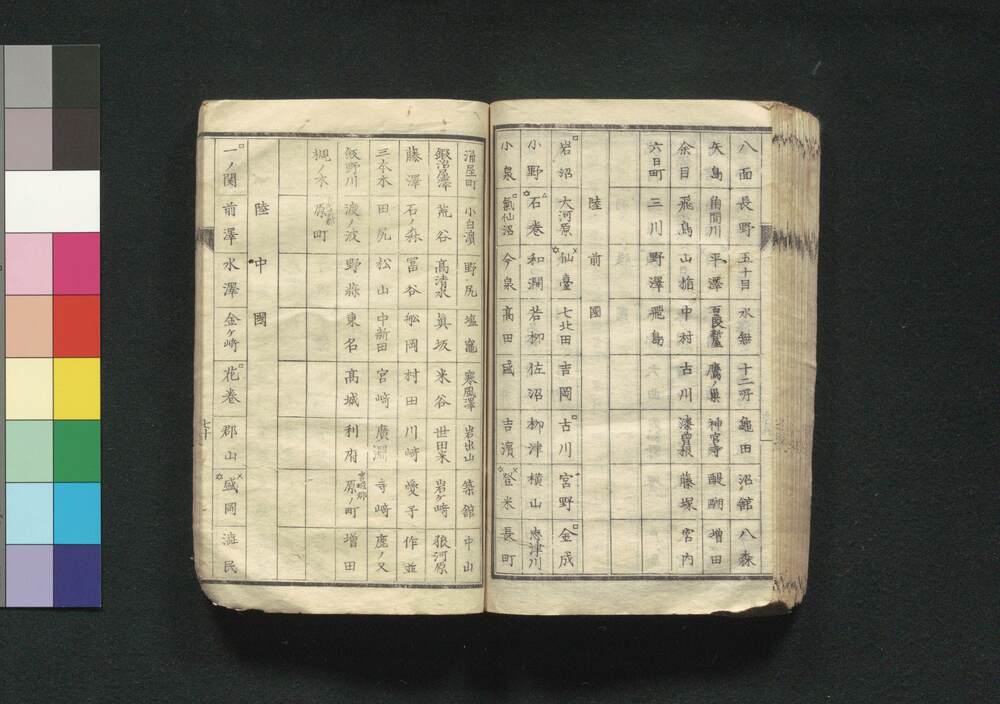 八面 長野 五十目 水無 十二所 龜田 沼館 八森
矢島 角間川 平澤 鷹ノ巣 神宮寺 醍醐 増田
余目 飛鳥 山楯 中村 古川 漆曽根 藤塚 宮内
六日町 三川 野澤 飛島
陸前國
岩沼 大河原 仙臺 七北田 吉岡 古川 宮野 金成
小野 石巻 和渕 若柳 佐沼 柳津 横山 志津川
小泉 氣仙沼 今泉 高田 盛 吉濱 登米 長町
涌屋町 小白濱 野尻 塩竈 寒風澤 岩出山 築館 中山
鍛冶屋澤 荒谷 高清水 眞坂 米谷 世田米 岩ケ﨑 狼河原
藤澤 石ノ森 冨谷 舩岡 村田 川﨑 愛子 作並
三本木 田尻 松山 中新田 宮﨑 廣渕 寺﨑 鹿ノ又
飯野川 渡ノ波 野蒜 東名 高城 利府 原ノ町 増田
槻ノ木 原町
陸中國
一ノ関 前澤 水澤 金ケ﨑 花巻 郡山 盛岡 澁民
七十